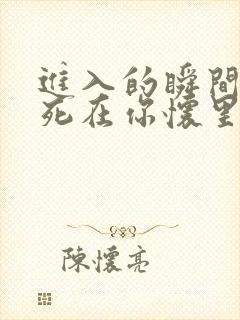 進入的瞬間
死在你懷里
陳懷亮